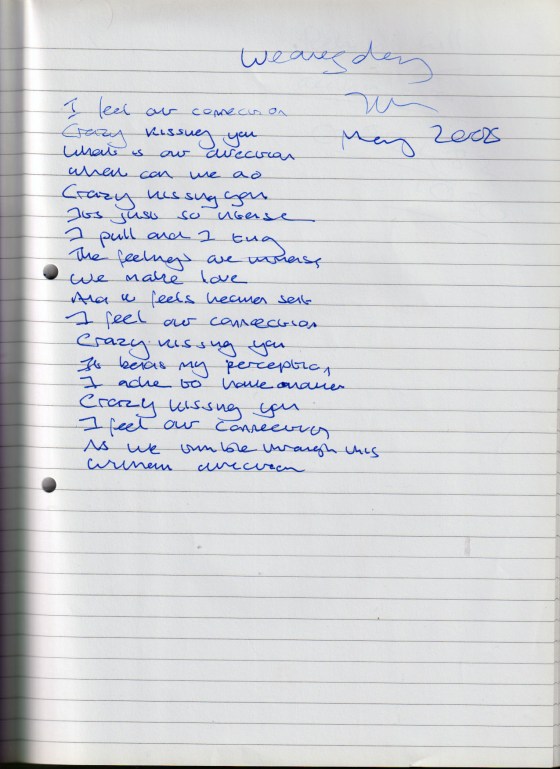 Wednesday
7th
May 2008
I feel our connection
Crazy kissing you
What is our direction
When can we do
Crazy kissing you
Its just so intense
I pull and I tug
The feelings are immense,
We make love
And it feels heaven sent
I feel our connection
Crazy kissing you
Its bends my perception,
I ache to
Crazy kissing you
I feel our connection,
As we tumble through this
direction